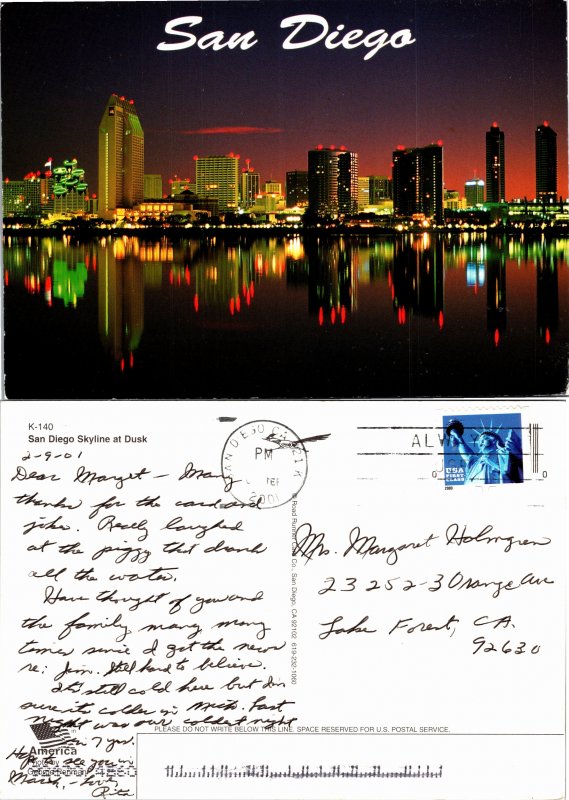 San Diego
K-140
San Diego Skyline at Dusk
2-9-01
Dear Marget - Many
thanks for the card and
joke. Really laughed
at the piggy that drank
all the water.
Have thought of you and
the family many many
times since I got the news
re: Jim. Still hard to believe.
It's still cold here but I'm
sure its colder in Mich. Last
night was our coldest night
in 7 yrs.
Hope to see you in
March, - Love,
Rita
SAN DIEGO CA
PM
FEB
2001
ALW
USA
FIRST-
CLASS
2000
© Road Runner Card Co., San Diego, CA 92102 619-232-1060
Mrs. Margaret Holmgren
23252-3 Orange Ave
Lake Forest, CA.
92630
PLEASE DO NOT WRITE BELOW THIS LINE. SPACE RESERVED FOR U.S. POSTAL SERVICE.
America